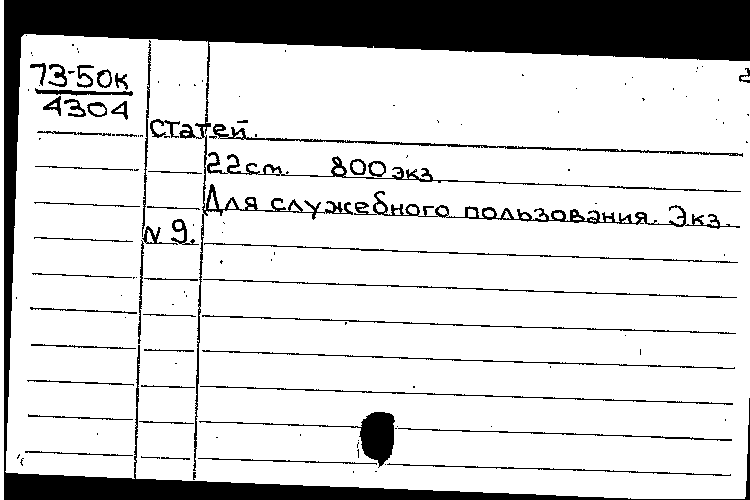 73-50к
4304
статей.
22см. 800 экз.
Для служебного пользования. Экз.
N 9.